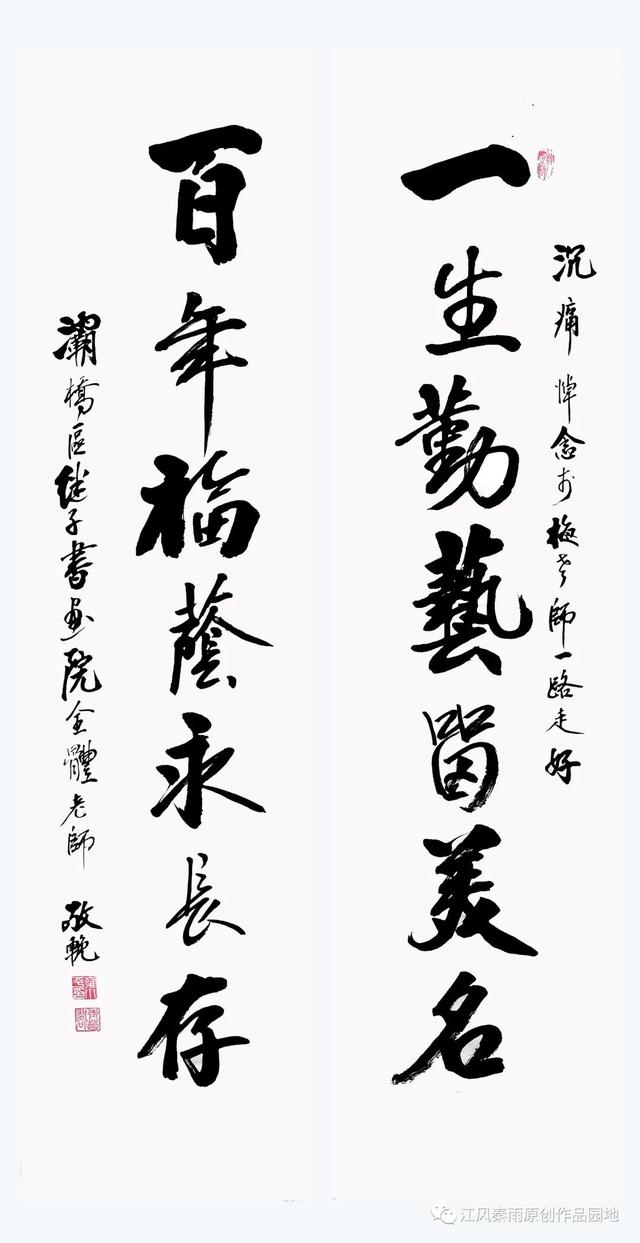 沉痛悼念于梅老師一路走好
一生勤藝留美名
百年福蔭永長存
灞橋區继子書画院全體老師 敬輓
江风秦雨原创作品园地